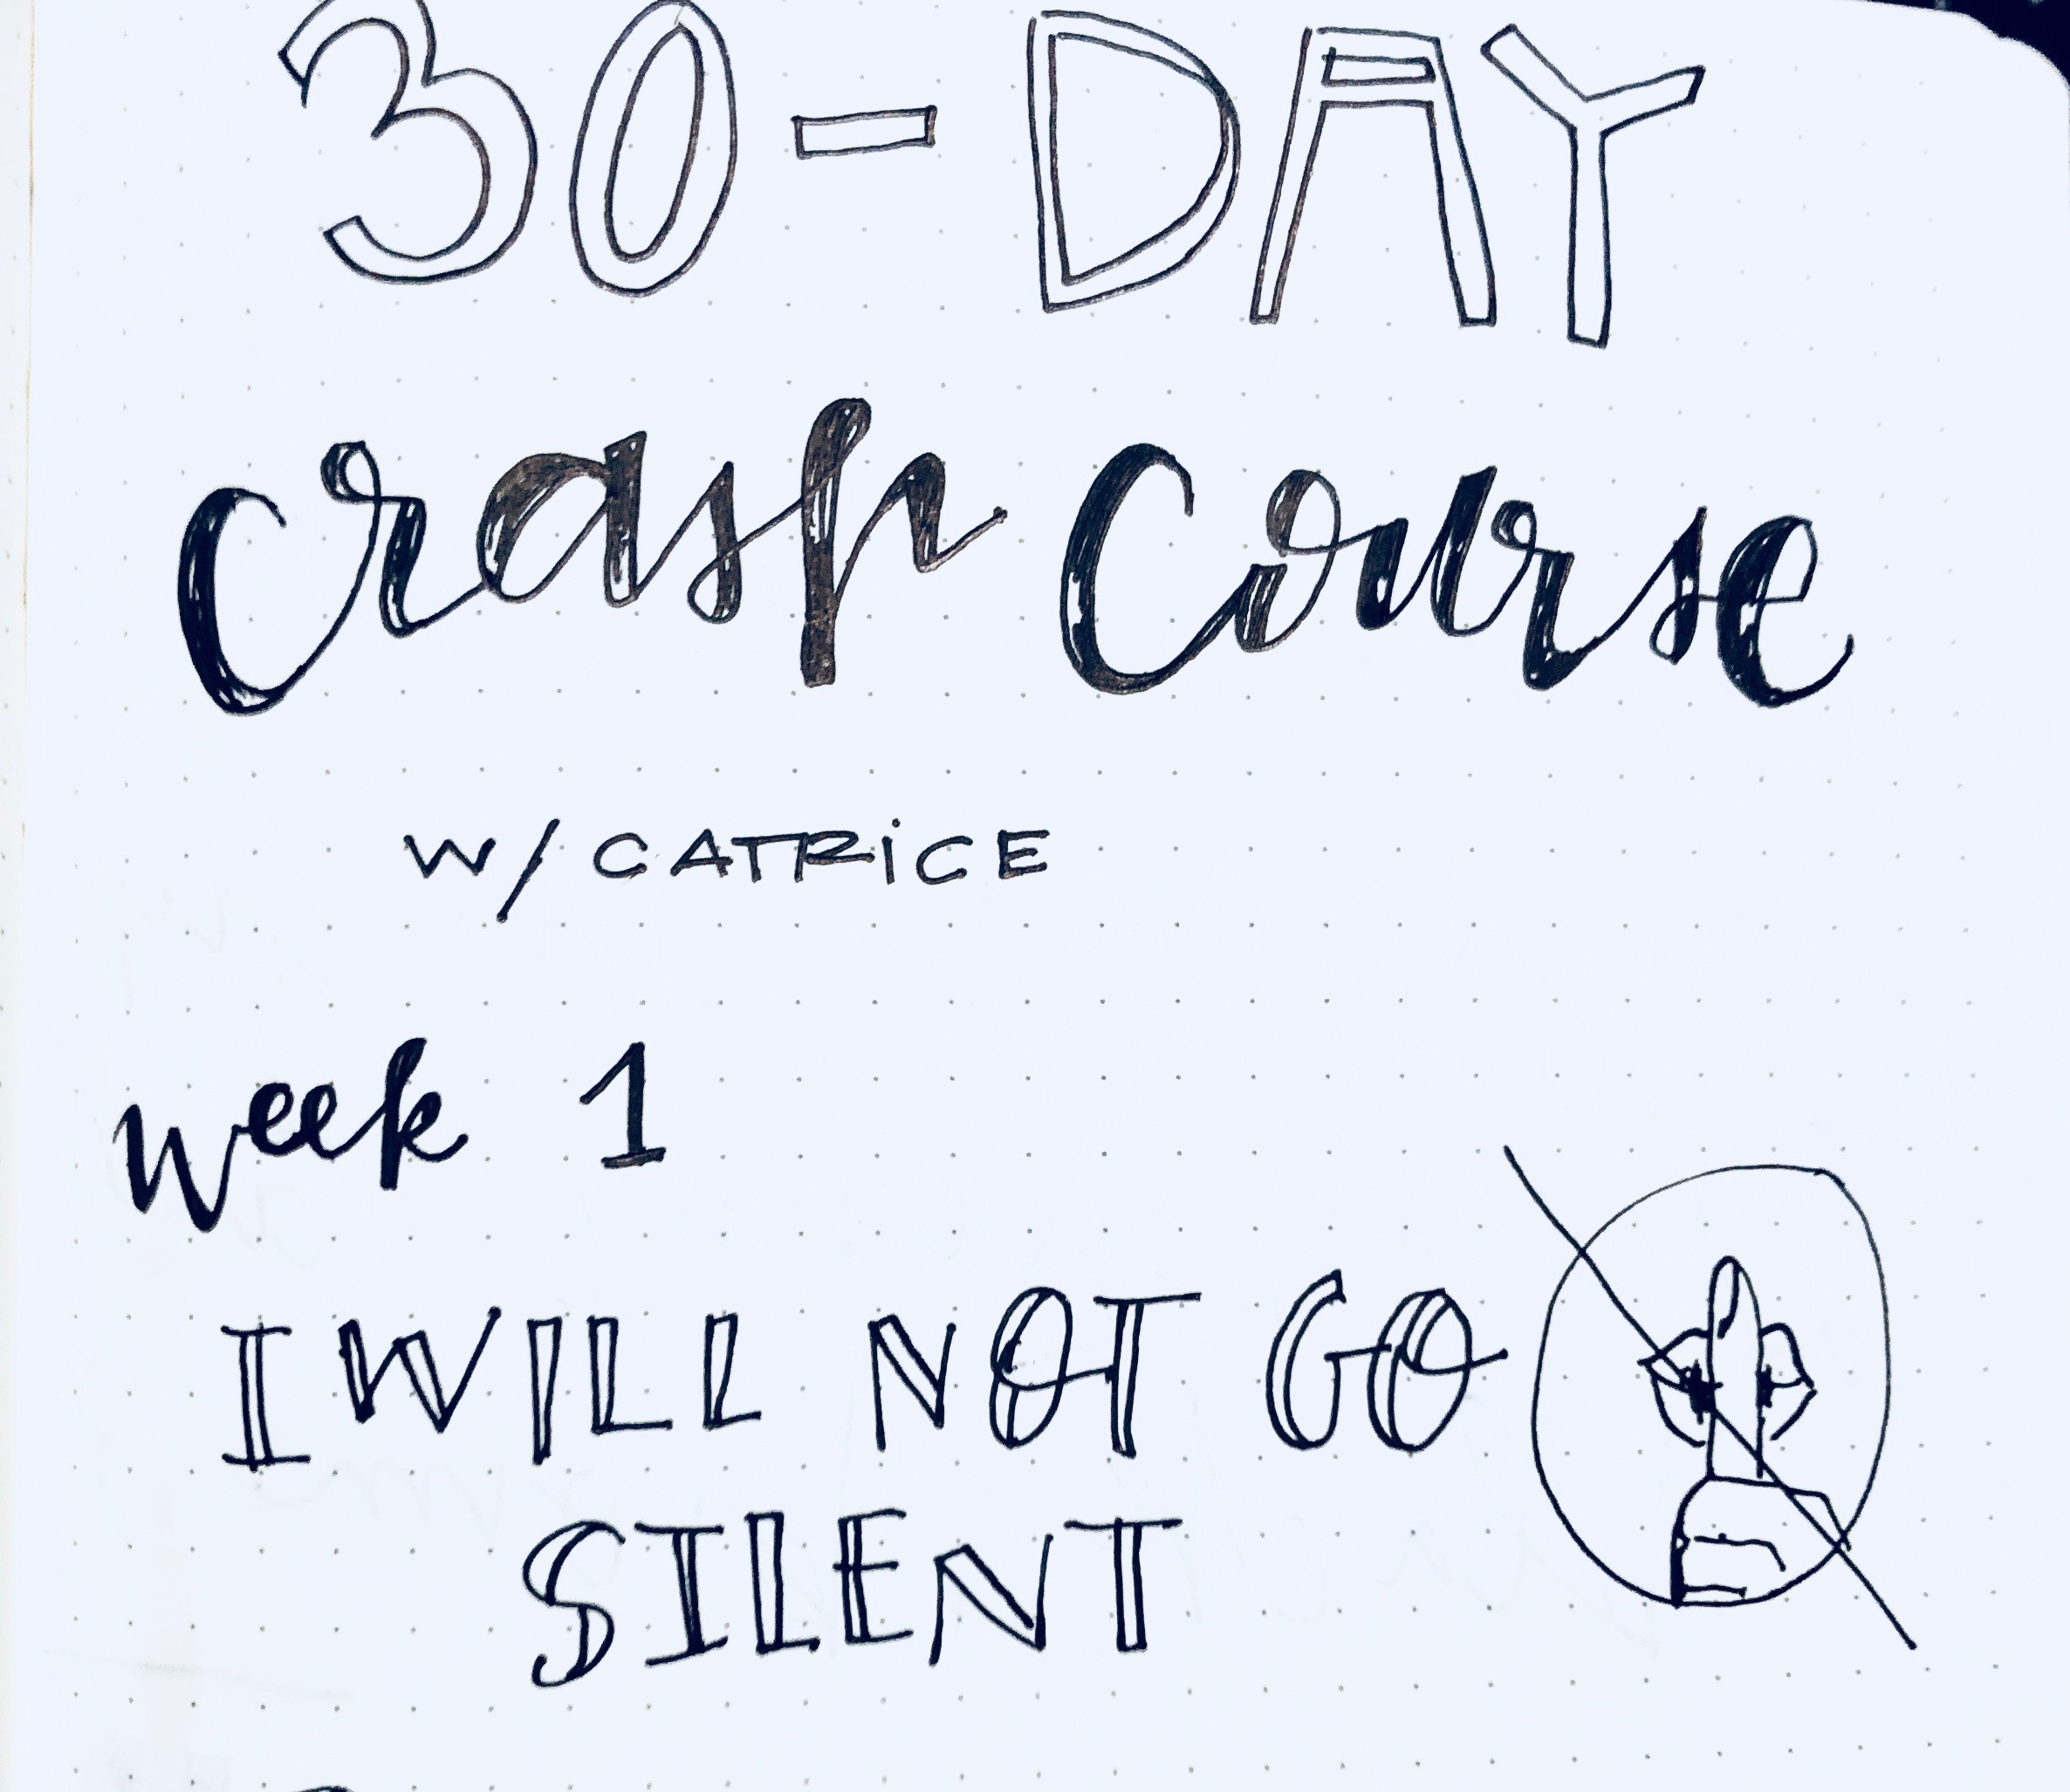 30-DAY
crash course
W/ CATRiCE
week 1
I WILL NOT GO
SILENT